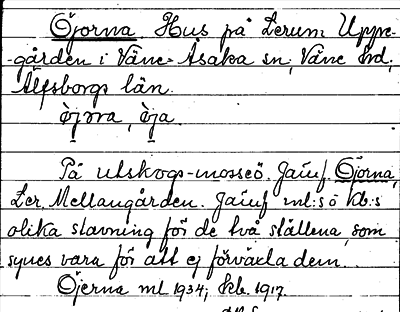 Öjorna. Hus på Lerum Uppe-
-gården i Väne-Åsaka sn, Väne hd,
Älfsborgs län.
òjơra, òja.
På utskogs-mosseö. Jämf. Öjorna,
Ler. Mellangården. Jämf ml:s o kb:s
olika stavning för de två ställena, som
synes vara för att ej förväxla dem.
Öjerna ml 1934; kb. 1917.